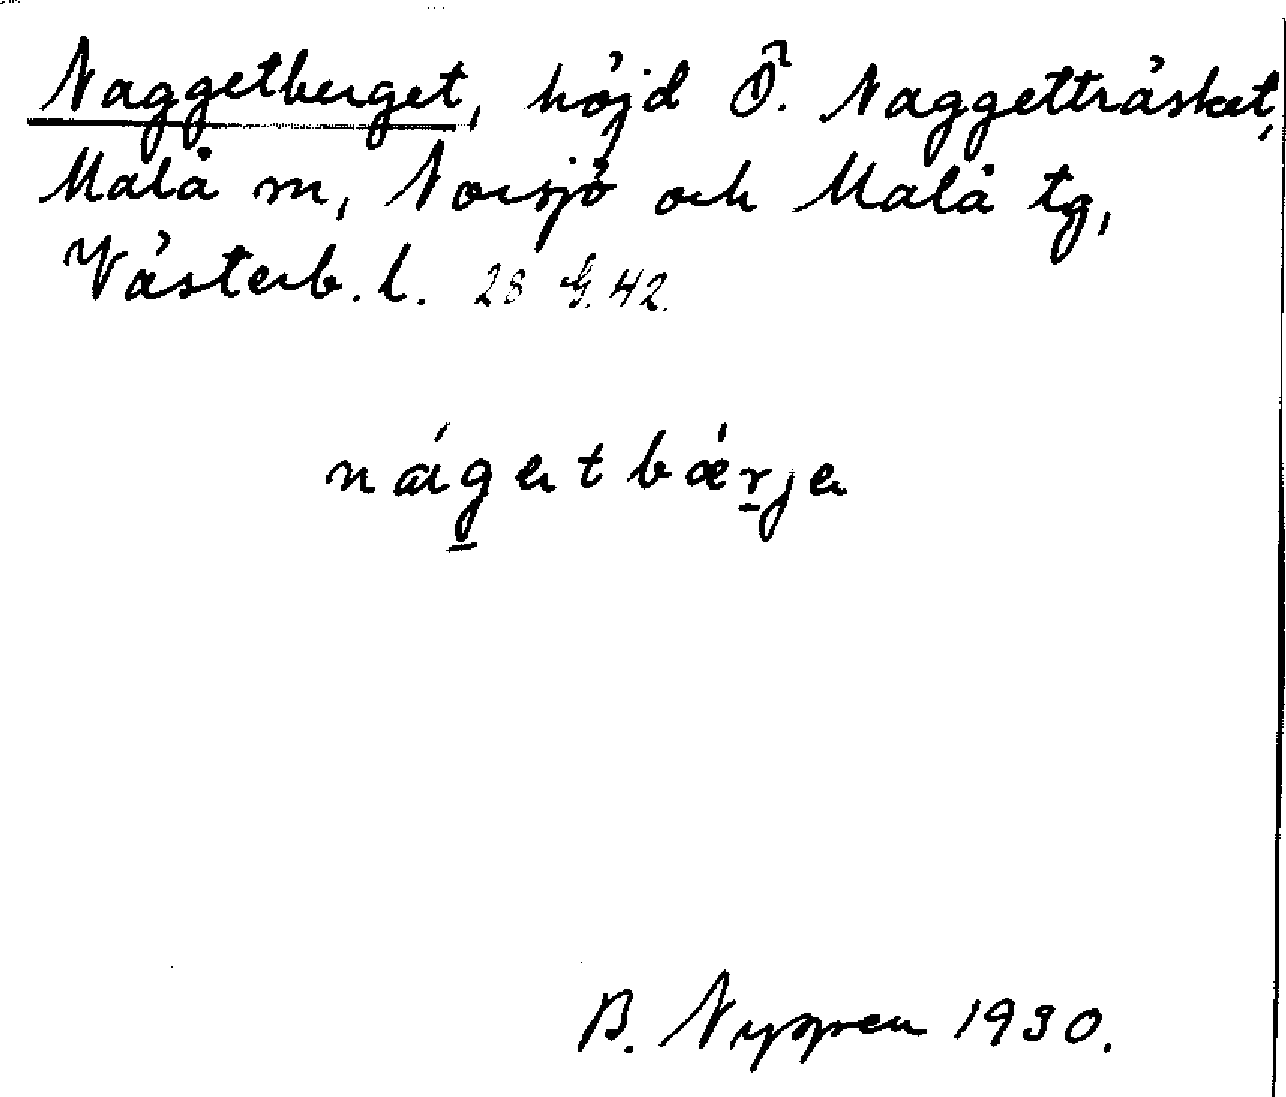 Naggetberget, höjd Ö. Naggetträsket,
Malå sn, Norsjö och Malå tg,
Västerb. l. 28 G. 42.
nágetbǽrje
B. 1930.